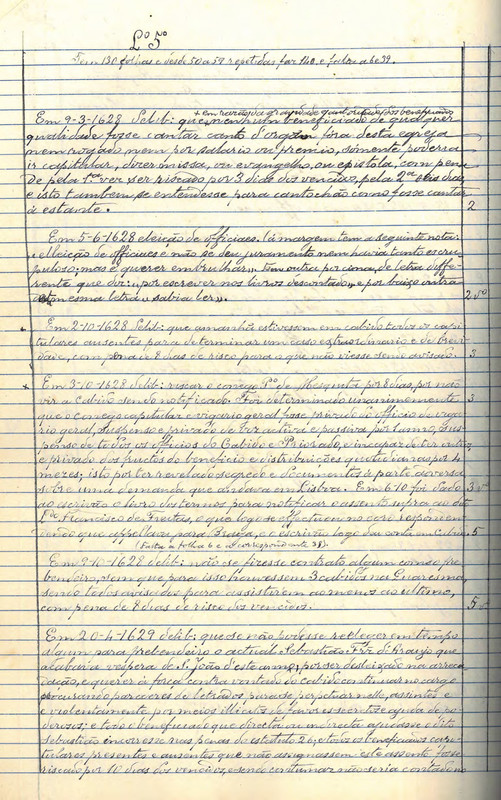 Lº 5º
Tem 130 folhas e desde 50 a 59 repetidas faz 140, e falta a 6 e 39.
+ em razão da grande quantidade dos beneficiados
Em 9-3-1628 Delib: que nenhum beneficiado de qualquer
qualidade fosse cantar canto d'orgão fora desta egreja
nem rogado, nem por salario ou premio, somente poderia
ir capitular, dizer missa, ou evangelho, ou epistola, com pena
de pela 1ª vez ser riscado por 3 dias dos vencidos, pela 2ª oito dias,
e isto tambem se entendesse para cantochão como fosse cantar
á estante. 2
Em 5-6-1628 eleição de officiaes. Á margem tem a seguinte nota:
"eleição de officiaes e não se deu juramento nem havia tanto escru-
puloso; mas é querer embrulhar". Tem outra por cima, de letra diffe-
rente que diz: "por escrever nos livros descontado" e por baixo outra
da mesma letra "sabia ler". 2 vº
Em 2-10-1628 Delib: que amanhã estivessem em cabido todos os capi-
tulares ausentes para determinar um caso extraordinario e de brevi-
dade, com pena de 8 dias de risco para o que não viesse sendo avisado. 3
Em 3-10-1628 delib: riscar o conego Pº de Mesquita por 8 dias, por não
vir a Cabido sendo notificado. Foi determinado unanimemente 3
que o conego capitular e vigario geral fosse privado do officio de viga-
rio geral, suspenso e privado de voz activa e passiva por 1 anno, sus-
penso de todos os officios do Cabido e Priorado, e incapaz de ter outro
e privado dos fructos do beneficio e distribuições quotidianas por 4
mezes; isto por ter revelado segredo e documentos á parte adversa
sobre uma demanda que andava em Lisboa. Em 6-10 foi dado 3 vº
ao escrivão o livro dos termos para notificar o assento supra ao dito
Lº Francisco de Freitas, o que logo se effectuou no coro, respondem-
dendo que appellava para Braga, e o escrivão logo deu conta em Cabido. 5
(Falta a folha 6 e a correspondente 39).
Em 9-10-1628 delib: não se fizesse contrato algum com o pre-
bendeiro, sem que para isso houvessem 3 cabidos na Quaresma,
sendo todos avisados para assistirem ao menos ao ultimo,
com pena de 8 dias de risco dos vencidos. 5 vº
Em 20-4-1629 delib: que se não podesse reeleger em tempo
algum para prebendeiro o actual Sebastião Frz de Araujo que
acabaria vespera de S. João d'este anno, por ser desleixado na arreca-
dação, e querer á força contra vontade do cabido continuar no cargo
procurando pareceres de letrados, para se perpetuar nelle, as intes e
e violentamente, por meios illicitos de favores secretos e ajuda de po-
derosos; e todo o beneficiado que directa ou indirecta ajudasse o dito
Sebastião incorresse nas penas do estatuto 26, e todos os beneficiados capi-
tulares presentes e ausentes que não assignassem este assento fosse
riscado por 10 dias dos vencidos, e sendo contumaz não seria contado no